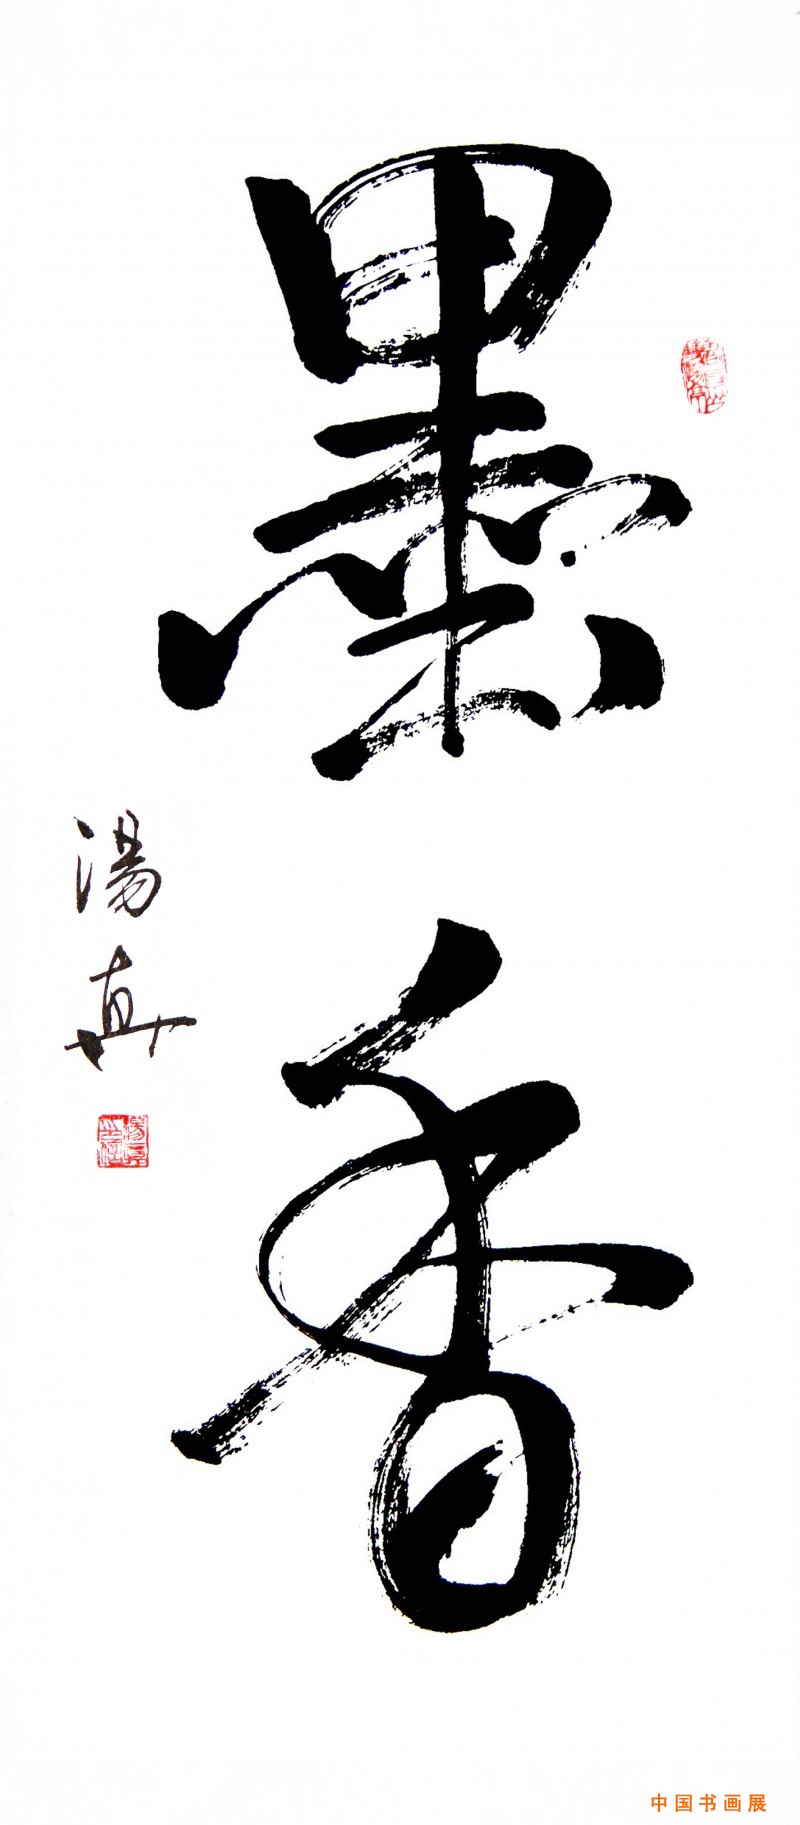 墨香
湯真
中国书画展